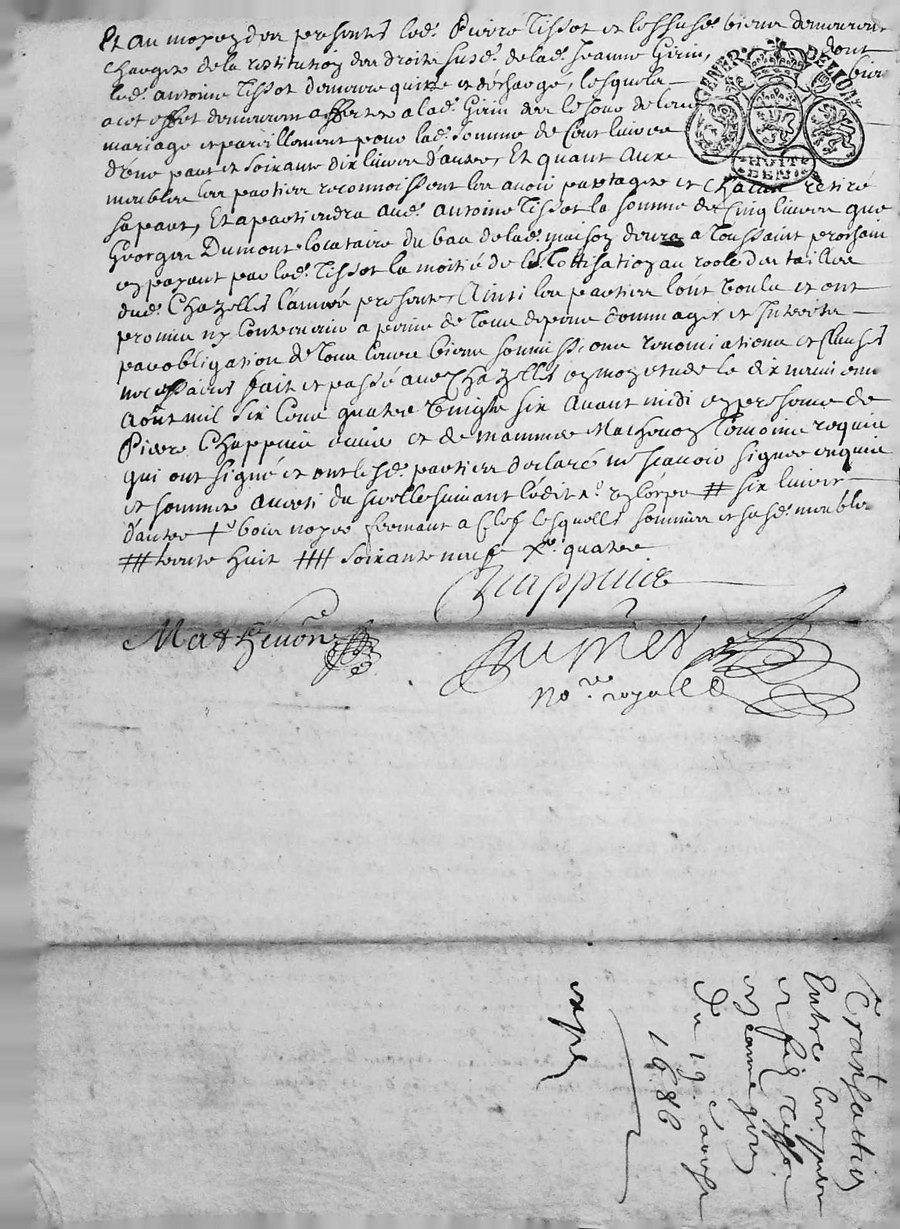 Et au moyen des presentes led. Pierre Tissot et les susd. biens demeurent
chargés de la restitution des droits susd. de lad. Jeanne Girin, dont
led. Antoine Tissot demeure quitte et dechargé, lesquels biens
a cet effet demeurent affectes a lad. Girin des le jour de leur
mariage et pareillement pour lad. somme de cent livres
d'une part et soixante dix livres d'autre, Et quant aux
meubles les parties reconnoissent les avoir partagés et chacun retiré
sa part, Et apartiendra aud. Antoine Tissot la somme de cinq livres que
George Dumont locataire du bas de lad. maison devra a Toussaint prochain
en payant par led. Tissot la moitié de la cottisation au roole des tailles
dud. Chazelles l'année presente, Ainsi les parties l'ont voulu et ont
promis ny contrevenir a peine de tous depens dommages et Interets
par obligation de tous leurs biens soumissions renonciations et clauses
necessaires fait et passé aud. Chazelles en mon etude le dix neuvieme
Aoust mil six cens quatre vingts six avant midi en presence de
Pierre Chappuis et de Mathevon temoins requis
qui ont signé et ont lesd. parties declaré ne scavoir signer enquis
et sommés averti du scelle suivant l'edit # six livres
d'autre + bois noyer fermant a clef lesquelles sommes et susd. meubles
## trente huit #### soixante neuf quatre
Chappuis
Mathevon
No.re royal
GENER. DE LION
HUIT
DEN
Transaction
Entre les pere
et fils Tissot
et Jeanne Girin
Du 19. Aoust
1686
expe